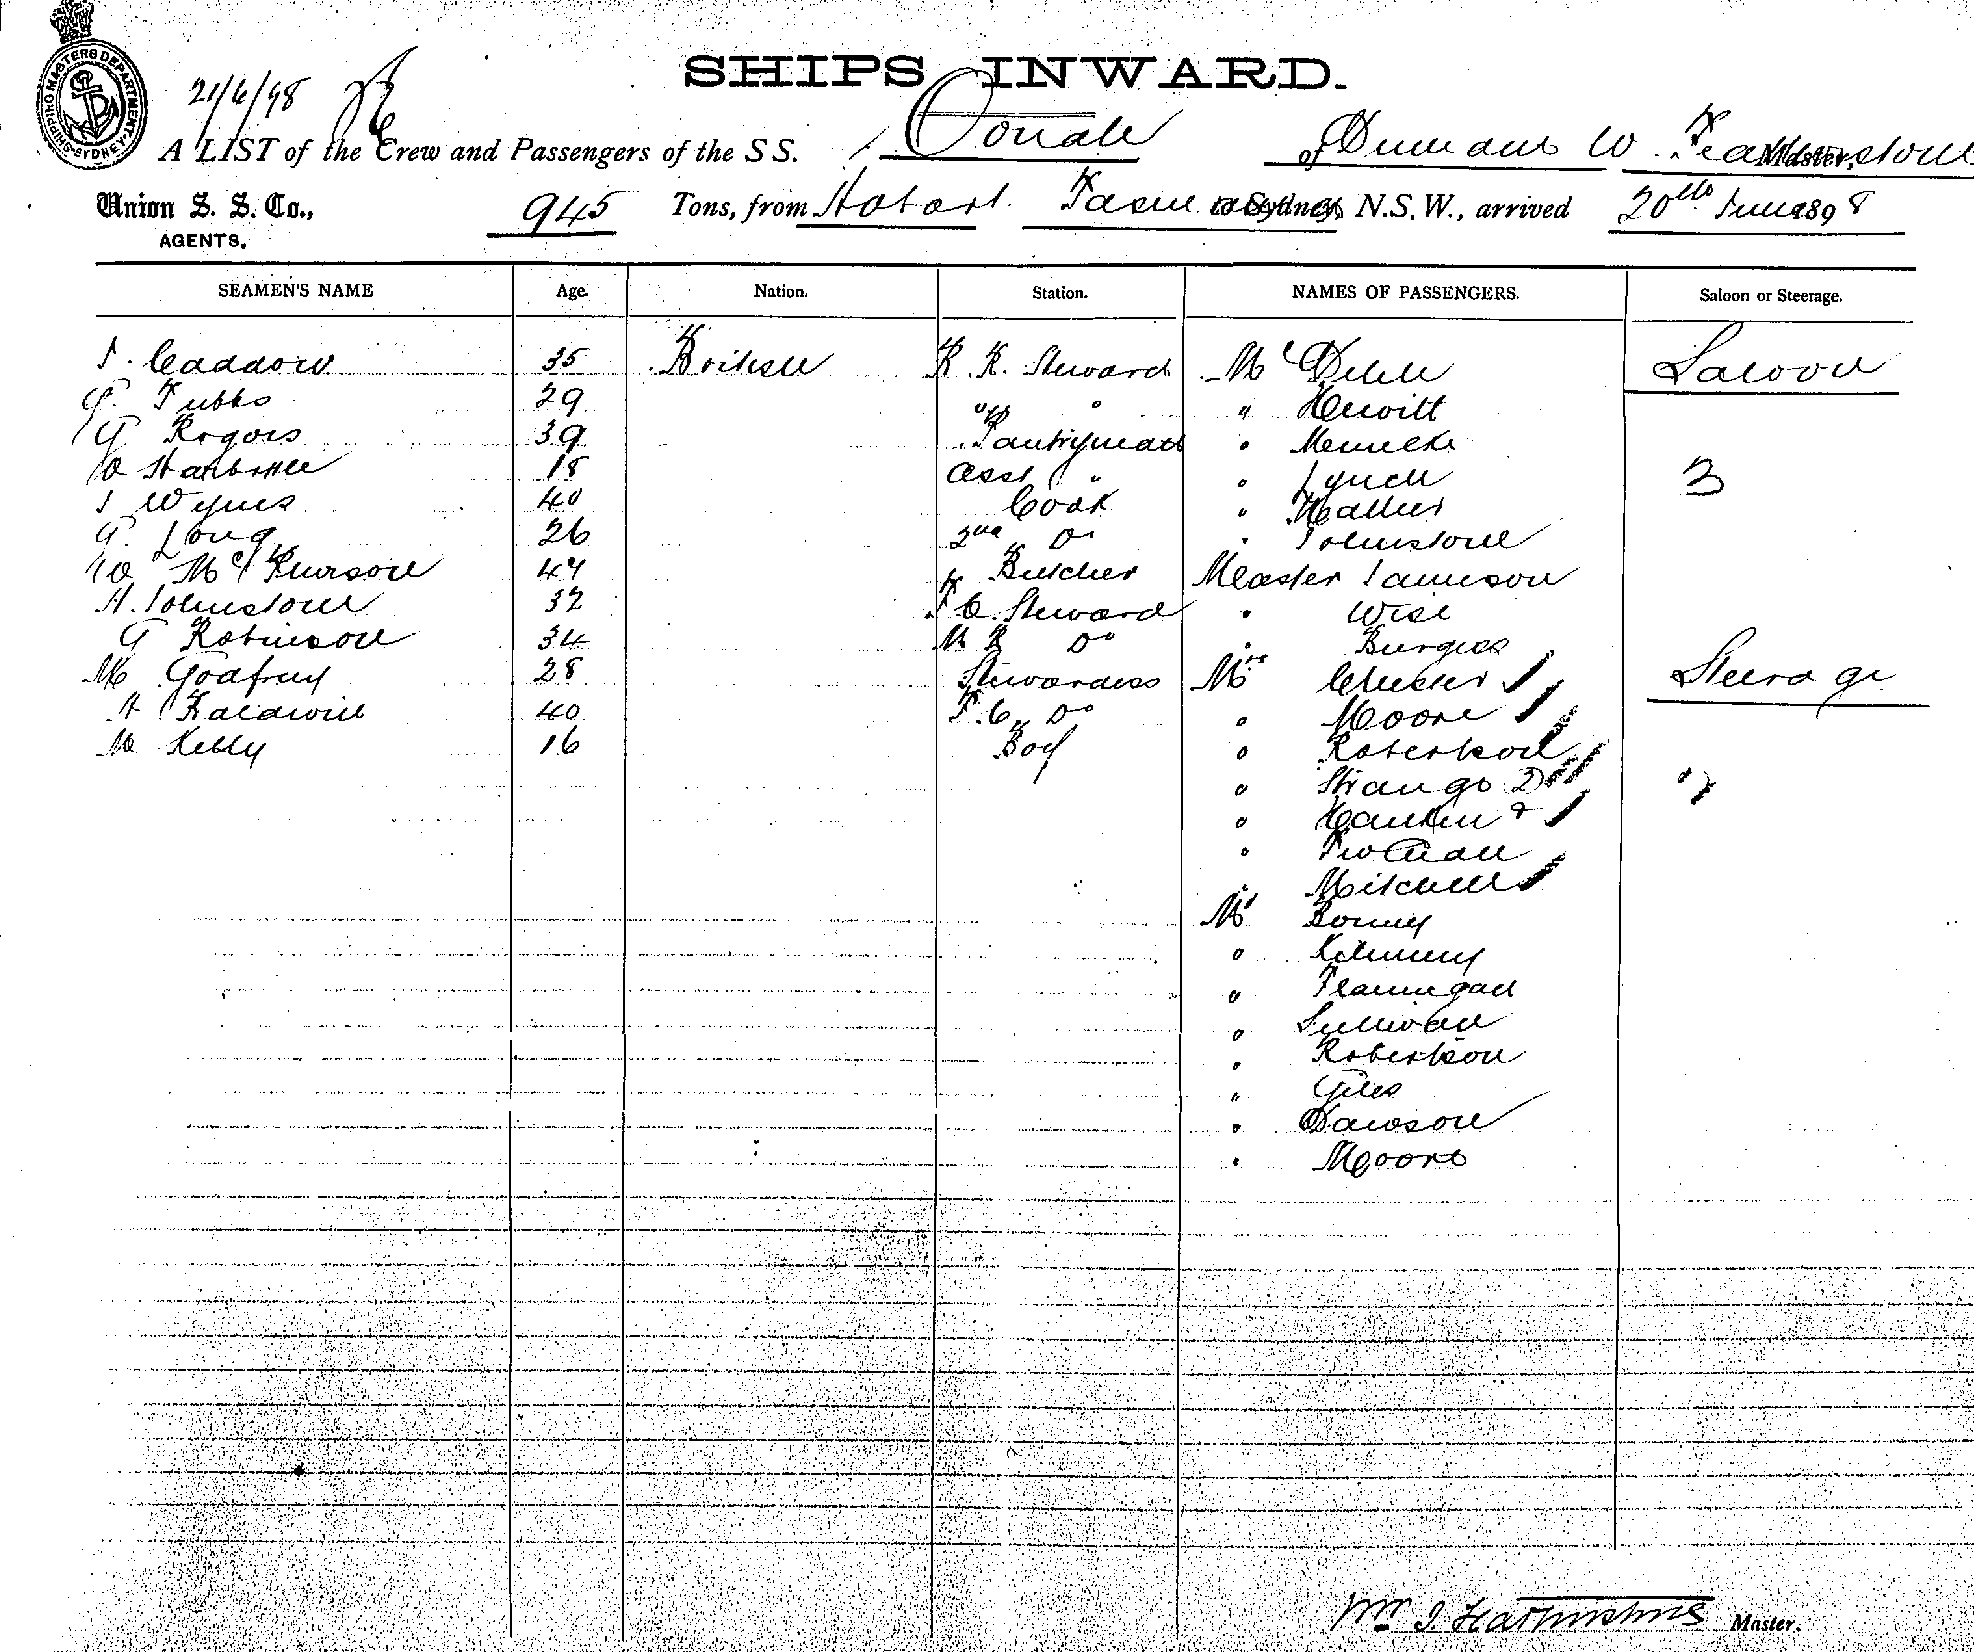 SHIPPING MASTERS DEPARTMENT SYDNEY
SHIPS INWARD.
21/6/98
A LIST of the Crew and Passengers of the S S. Oonah of Dunedin W. Featherstone Master,
Union S. S. Co., 945 Tons, from Hobart Tasm to Sydney, N.S.W., arrived 20th June 1898
AGENTS.
SEAMEN'S NAME Age. Nation. Station. NAMES OF PASSENGERS. Saloon or Steerage.
Caddow 35 British Steward Mr Saloon
Tubbs 29 " " " Hewitt
G Rogers 39 Pantryman "
18 Asst " " Lynch 3
40 Cook " Mather
Long 26 2nd Do " Johnstone
McPherson 47 Butcher Master Jamieson
H. Johnstone 32 Steward " Wise
G Robinson 34 Do " Burgess
M Godfrey 28 Stewardess Mrs Chester Steerage
H Baldwin 40 F. C. Do " Moore
M Kelly 16 Boy " Robertson
" Strange 2
"
"
" Mitchell
Mr Bonney
"
" Flannigan
" Sullivan
" Robertson
" Giles
" Dawson
" Moore
Wm J Featherstone Master.